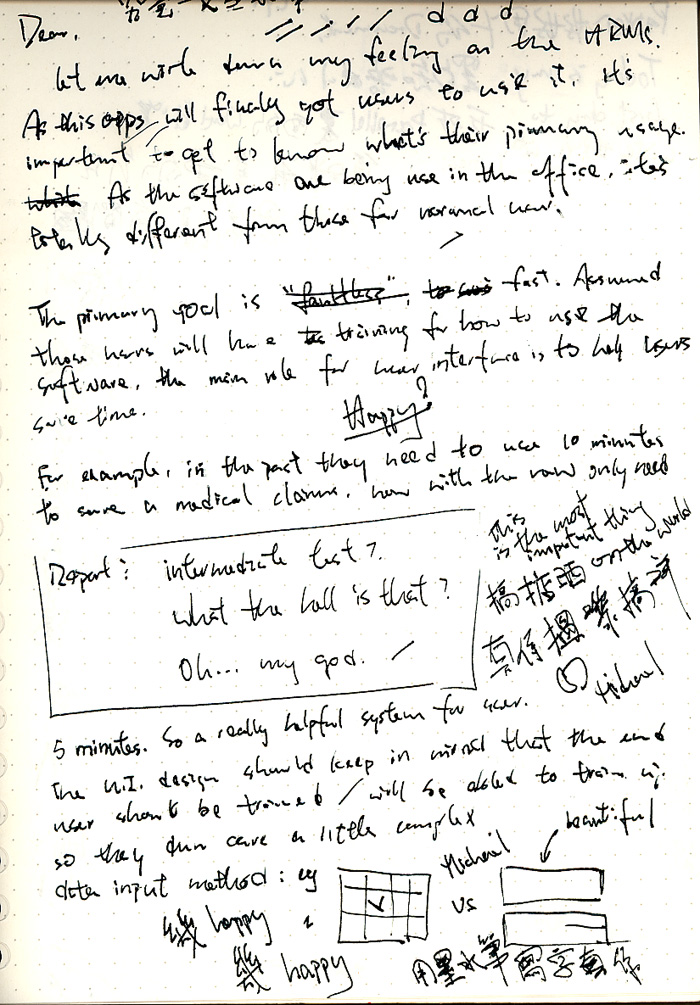 d d d
Dear,
Let me write down my feeling on the HRMS.
As this apps will finally got users to use it. It's
important to get to know what's their primary usage.
As the software are being use in the office, it's
totally different from those for normal user.
The primary goal is "faultless", fast. Assumed
those users will have training for how to use the
software, the main role for user interface is to help users
save time.
Happy?
For example, in the past they need to use 10 minutes
to save a medical claims, now with the new only need
this
is the most
important thing
on the world
Report: intermediate test?
What the hell is that?
Oh... my god.
搞掂西
真係搵笨搞
Michael
5 minutes. So a really helpful system for user.
The U.I. design should keep in mind that the end
user should be trained / will be abled to train up
so they dun care a little complex
data input method: eg
beautiful
Michael
VS
幾 happy
幾 happy
用墨水筆寫字真係